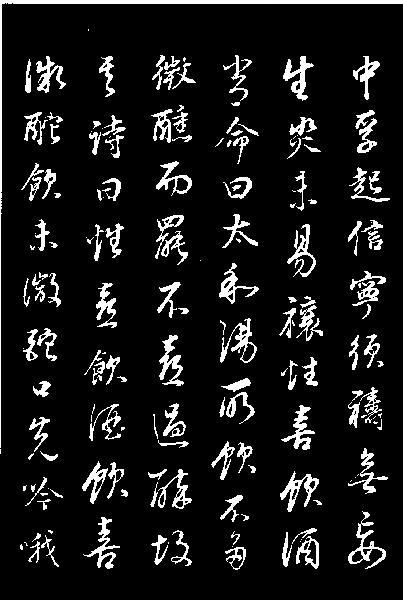 中孚起信寧須禱無妄
生災未易禳性喜飲酒
嘗命曰太和湯所飲不多
微醺而罷不喜過醉故
其詩曰性喜飲酒飲喜
微酡飲未微酡口先吟哦